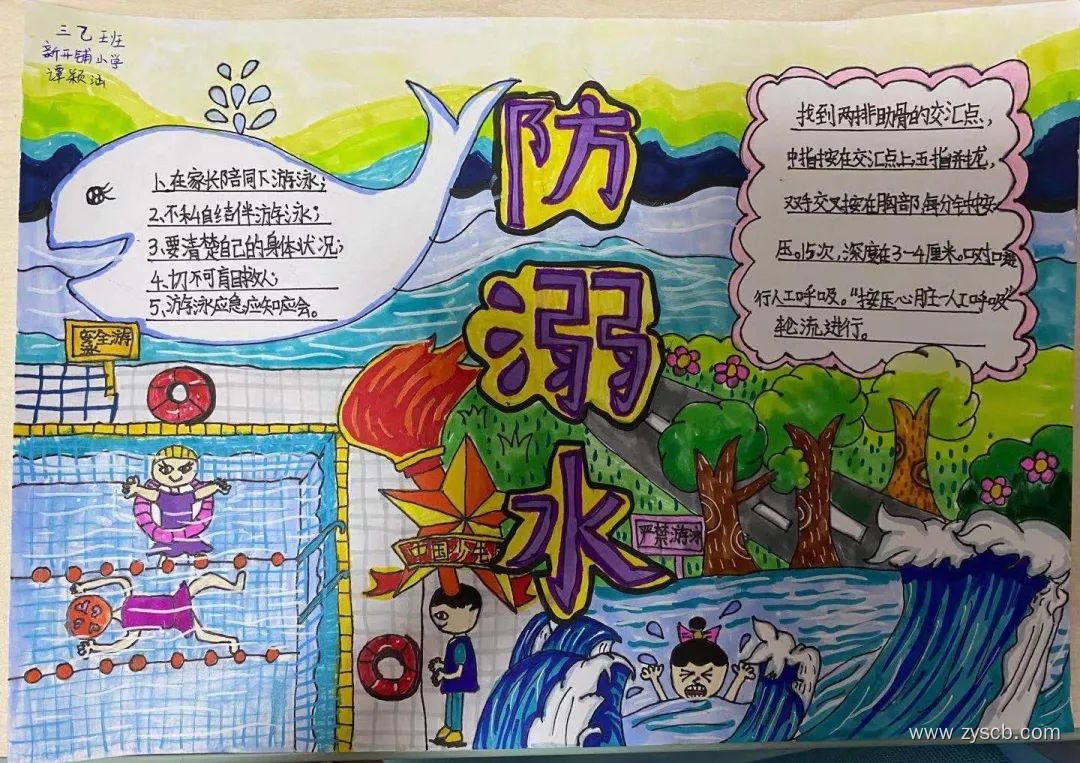 三乙班
新开铺小学
谭颖涵
防溺水
1、在家长陪同下游泳；
2、不私自结伴游泳；
3、要清楚自己的身体状况；
4、切不可盲目救人
5、游泳应急应知应会。
找到两排肋骨的交汇点，
中指按在交汇点上五指并拢，
双手交叉按在胸部，每分钟按
压。15次，深度在3-4厘米。口对口嘴
行人工呼吸。“按压心脏一人工呼吸”
轮流进行。
安全游
中国少年
严禁游泳
www.zyscb.com